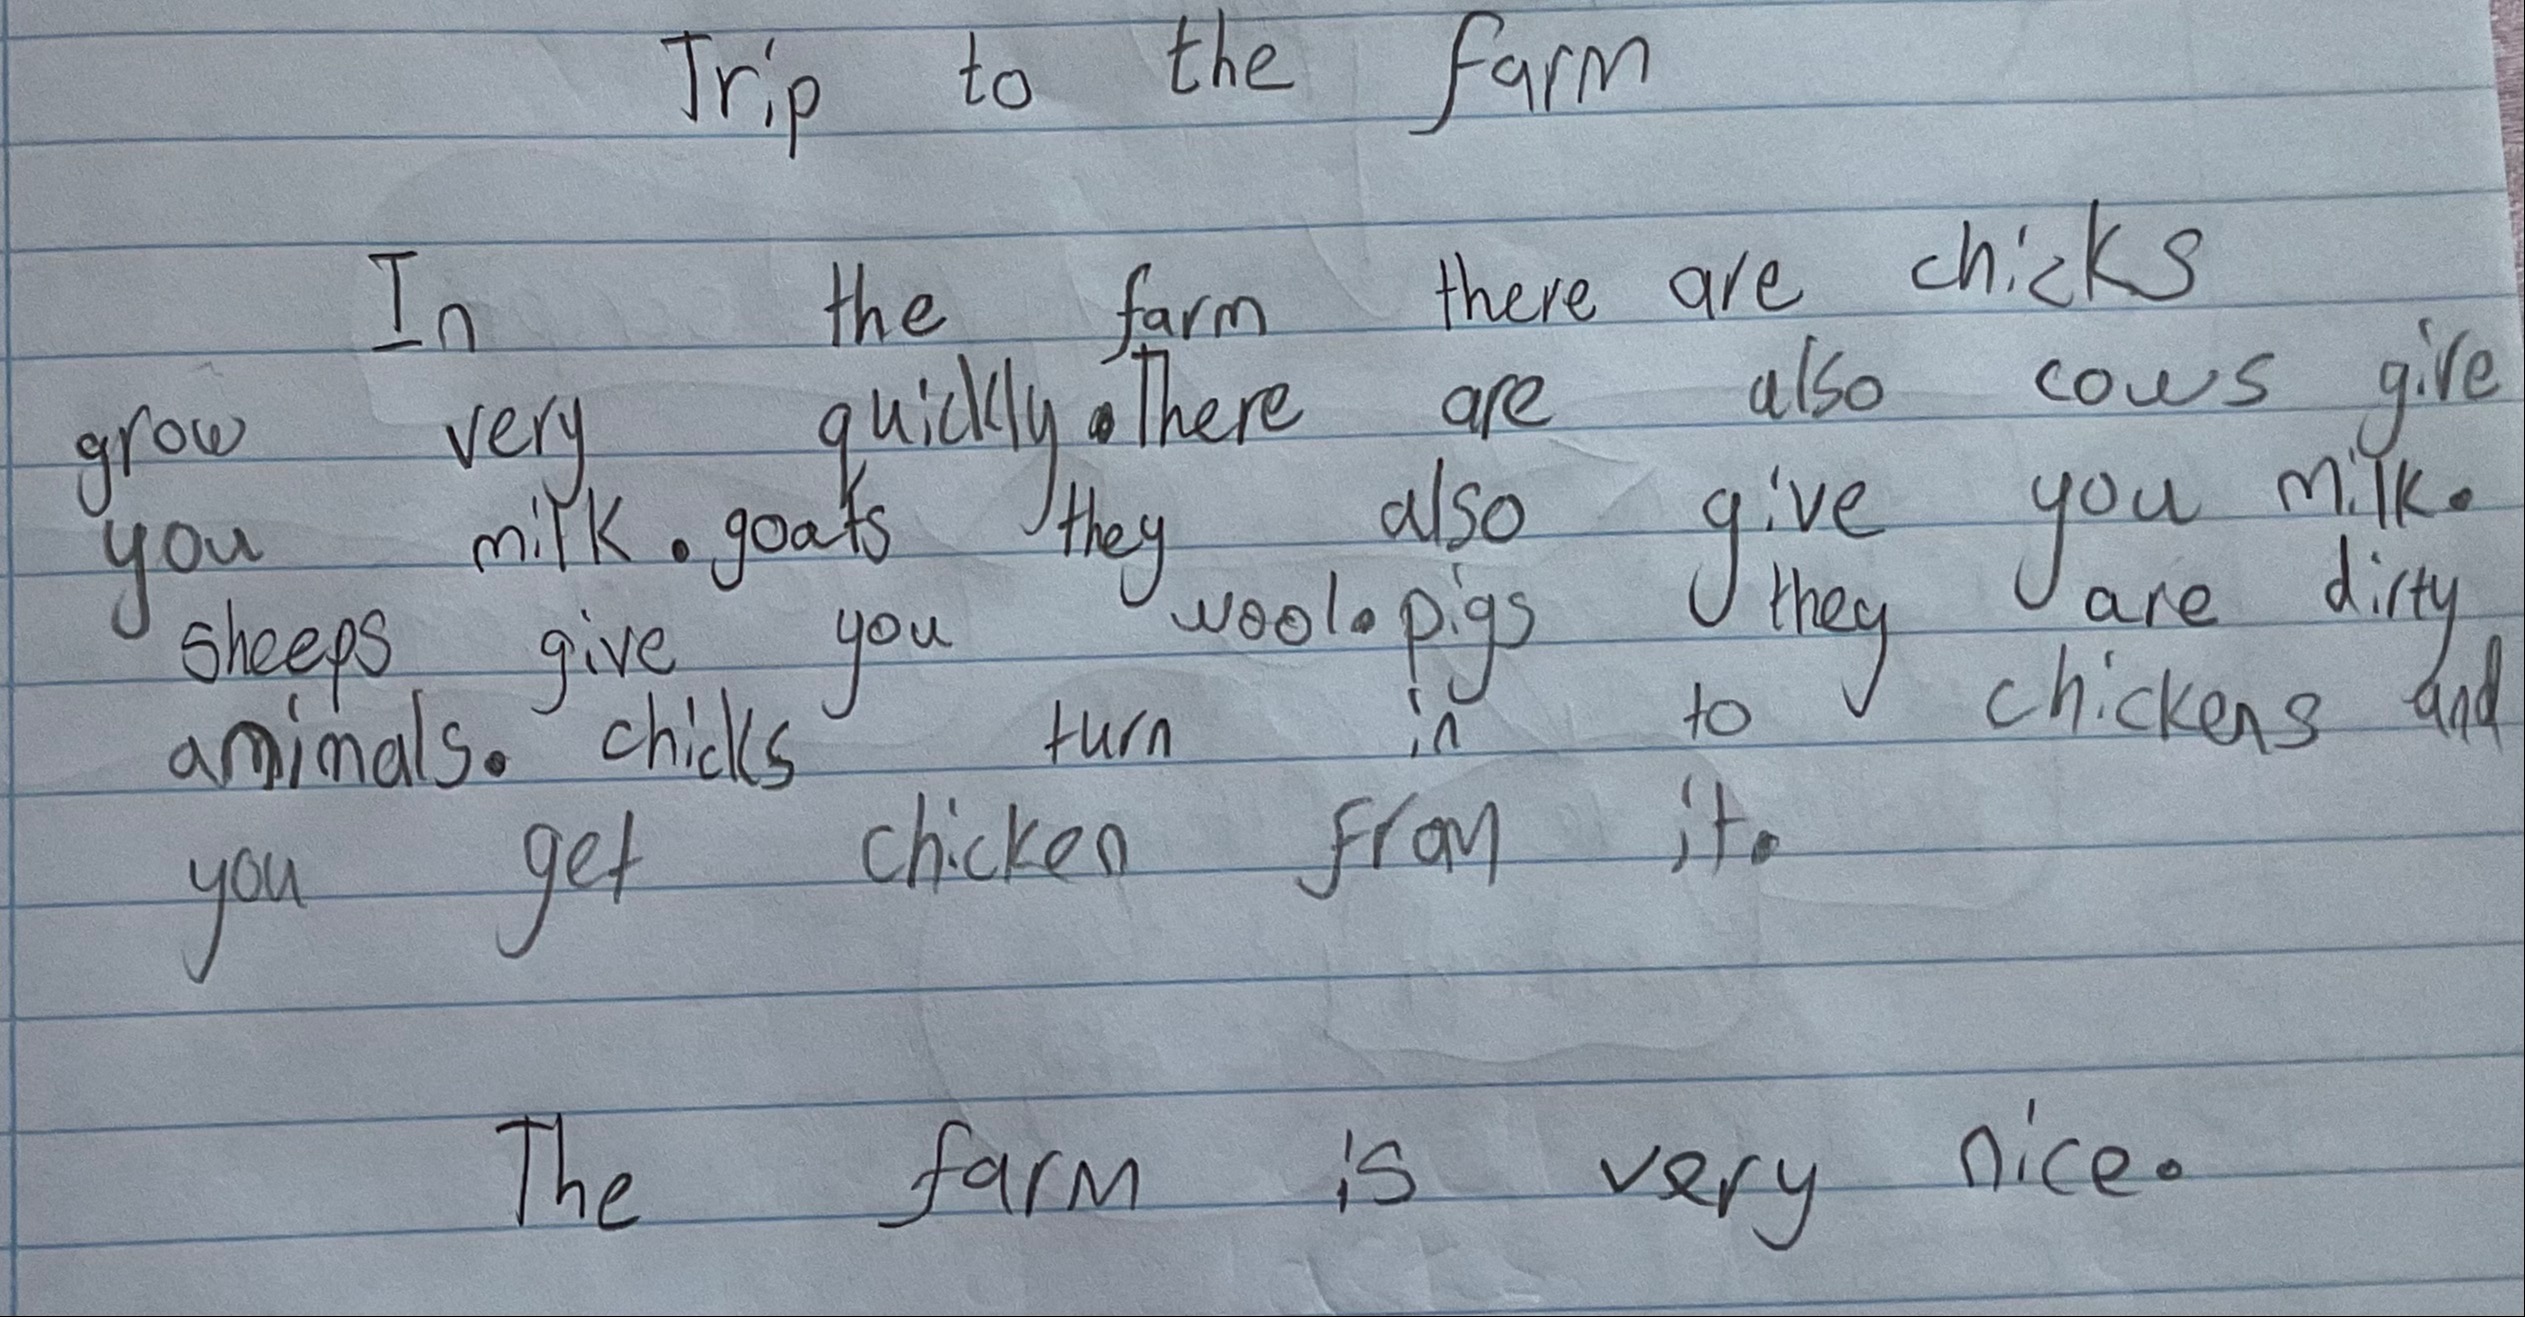 Trip to the farm
In the farm there are chicks
grow very quickly. There are also cows give
you milk. goats they also give you milk.
sheeps give you wool. pigs they are dirty
animals. chicks turn in to chickens and
you get chicken from it.
The farm is very nice.